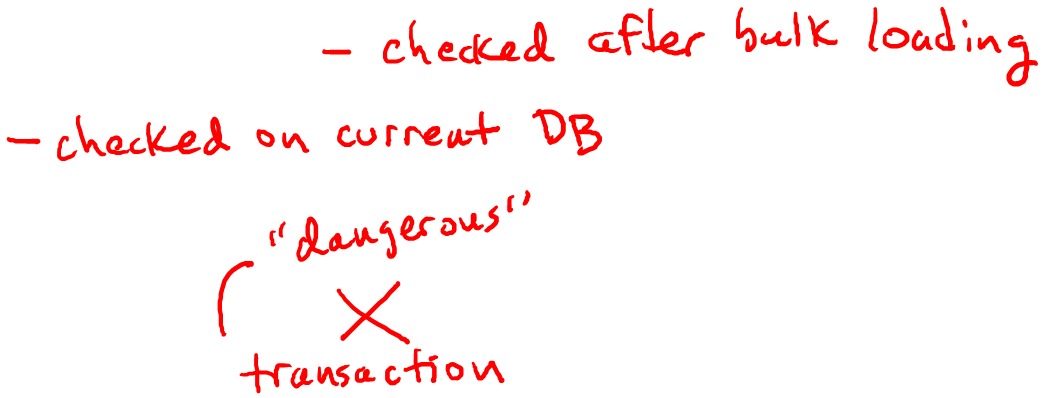 - checked after bulk loading
- checked on current DB
"dangerous"
transaction